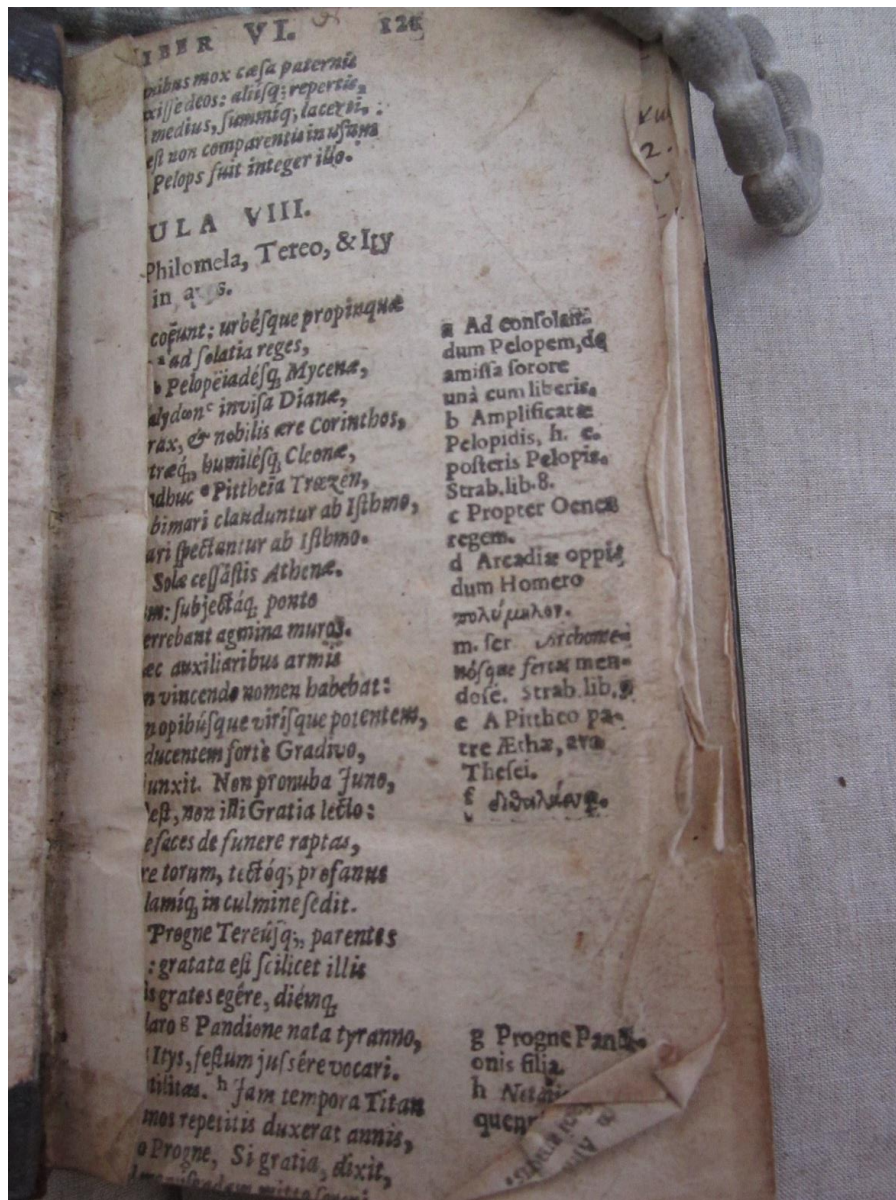 IBER VI. 121
nibus mox cæsa paternis
xisse deos: aliisq; repertis,
medius, summiq; lacerti,
est non comparentis in usum
Pelops fuit integer illo.
ULA VIII.
Philomela, Tereo, & Ity
in aves.
coëunt: urbésque propinquæ
ad solatia reges,
b Pelopëiadésq; Mycenæ,
alydon c invisa Dianæ,
rax, & nobilis ære Corinthos,
træq; humilésq; Cleonæ,
dhuc e Pittheïa Trœzen,
bimari clauduntur ab Isthmo,
ari spectantur ab Isthmo.
Solæ cessâstis Athenæ.
m: subjectáq; ponto
errebant agmina muros.
ec auxiliaribus armis
n vincendo nomen habebat:
n opibúsque virísque potentem,
ducentem fortè Gradivo,
junxit. Non pronuba Juno,
dest, non illi Gratia lecto:
e faces de funere raptas,
re torum, tectóq; profanus
lamiq; in culmine sedit.
Progne Tereúsq;, parentes
: gratata est scilicet illis
is grates egêre, diémq;
laro g Pandione nata tyranno,
Itys, festum jussêre vocari.
tilitas. h Jam tempora Titan
mos repetitis duxerat annis,
o Progne, Si gratia, dixit,
a Ad consolan-
dum Pelopem, de
amissa sorore
unà cum liberis.
b Amplificatæ
Pelopidis, h. e.
posteris Pelopis.
Strab. lib. 8.
c Propter Oeneæ
regem.
d Arcadiæ oppi-
dum Homero
πολύμηλον.
m. ser Orchome-
nósque ferax men-
dosè. Strab. lib. 9
e A Pittheo pa-
tre Æthæ, avo
Thesei.
f
g Progne Pandi-
onis filia.
h
quen